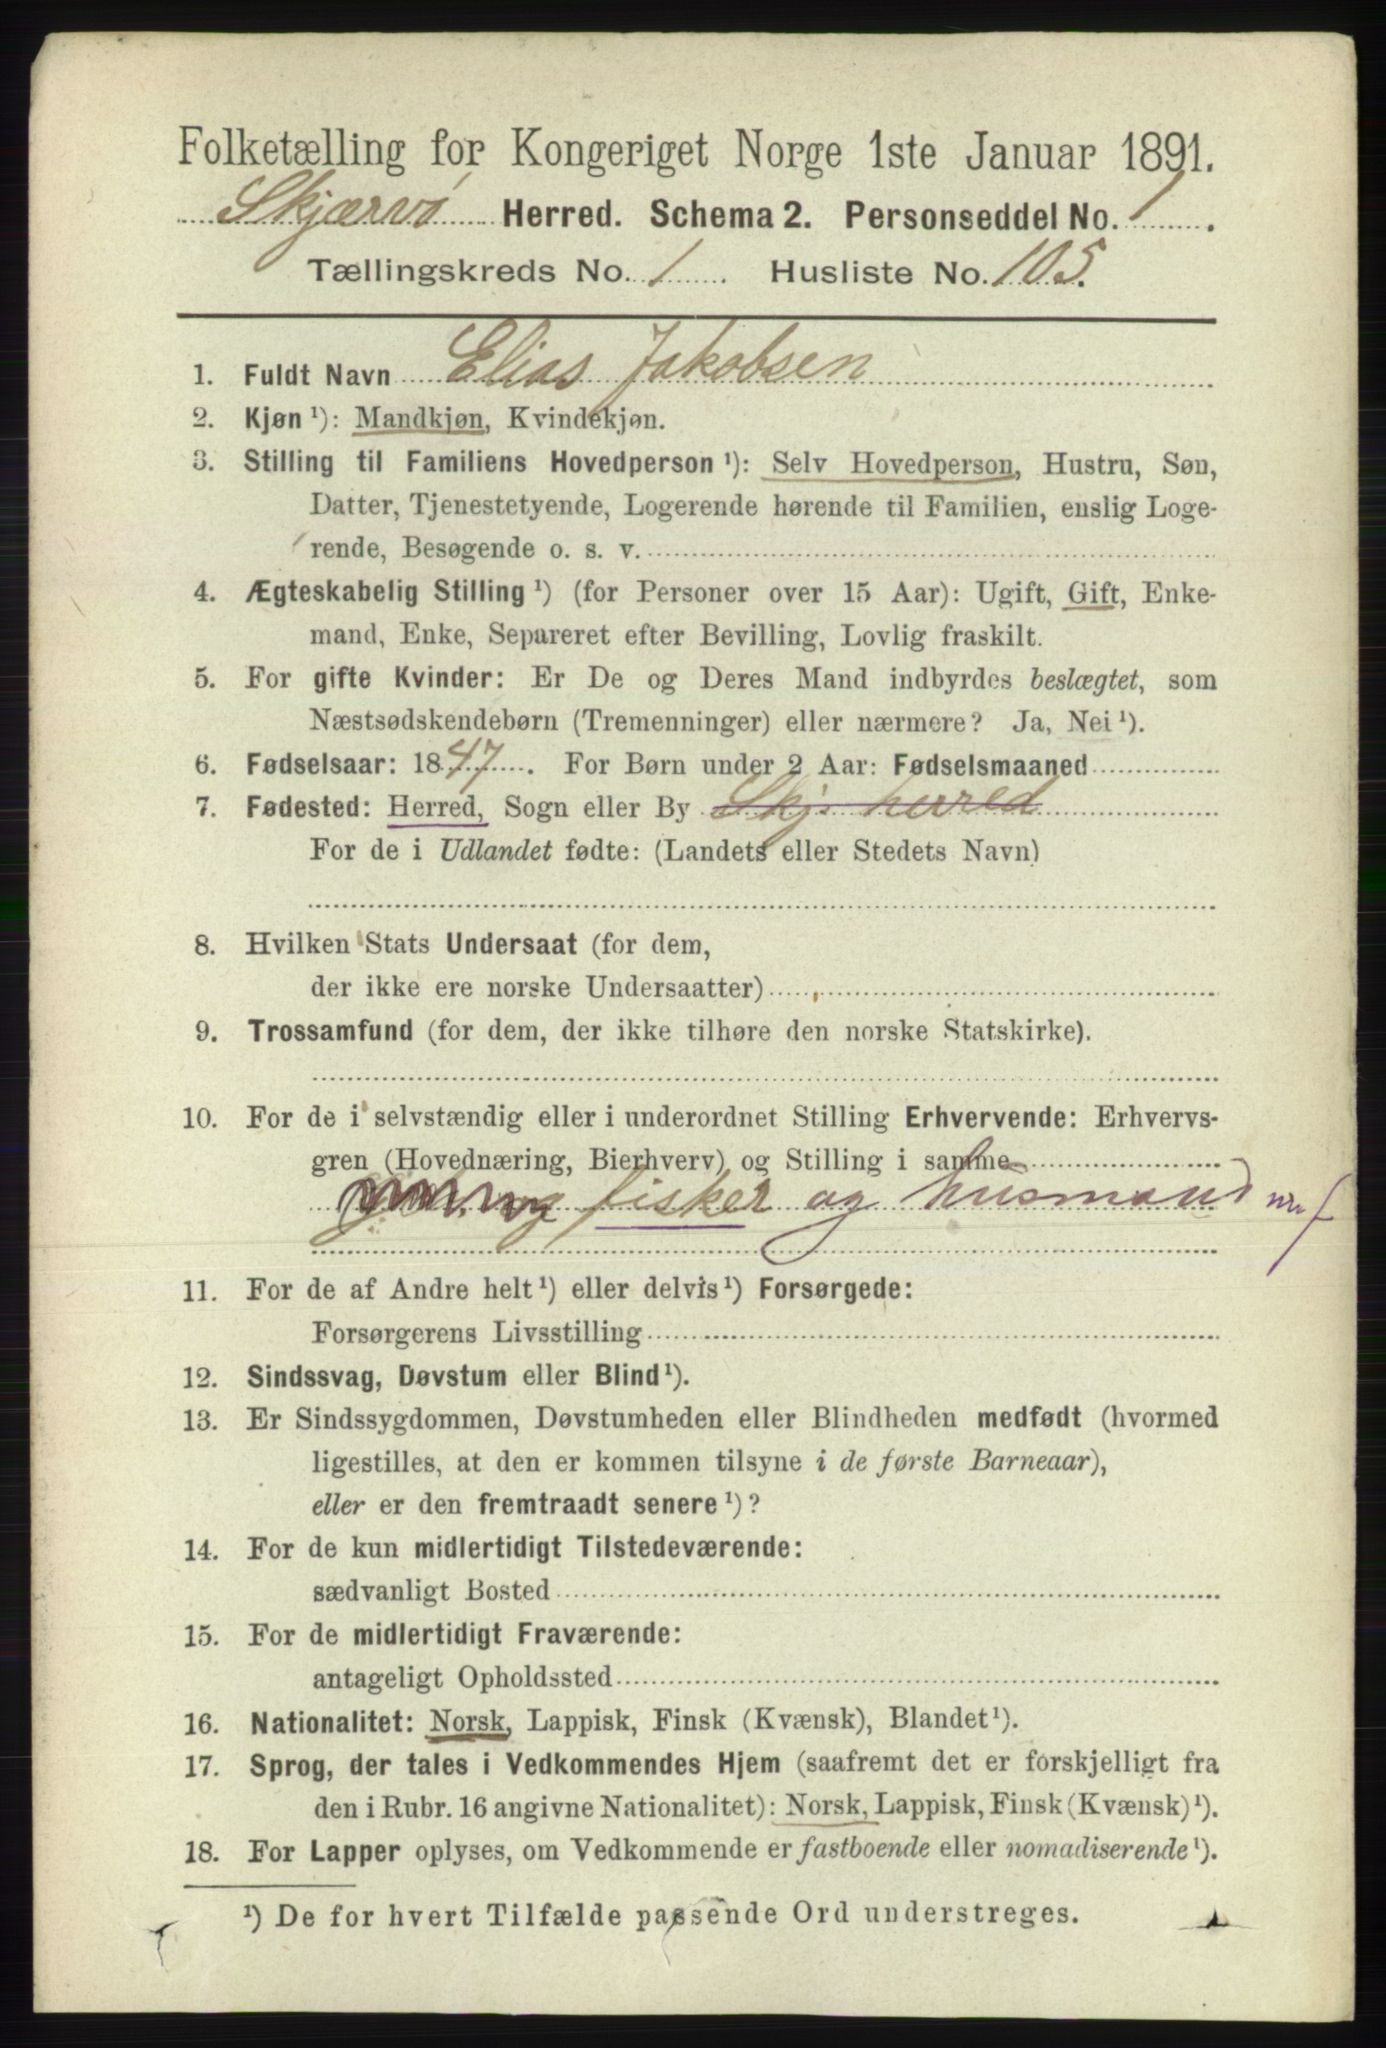 Folketælling for Kongeriget Norge 1ste Januar 1891.
Skjærvö Herred. Schema 2. Personseddel No. 1.
Tællingskreds No. 1. Husliste No. 105.
1. Fuldt Navn Elias Jakobsen
2. Kjøn ¹): Mandkjøn, Kvindekjøn.
3. Stilling til Familiens Hovedperson ¹): Selv Hovedperson, Hustru, Søn,
Datter, Tjenestetyende, Logerende hørende til Familien, enslig Loge-
rende, Besøgende o. s. v.
4. Ægteskabelig Stilling ¹) (for Personer over 15 Aar): Ugift, Gift, Enke-
mand, Enke, Separeret efter Bevilling, Lovlig fraskilt.
5. For gifte Kvinder: Er De og Deres Mand indbyrdes beslægtet, som
Næstsødskendebørn (Tremenninger) eller nærmere? Ja, Nei ¹).
6. Fødselsaar: 1847. For Børn under 2 Aar: Fødselsmaaned
7. Fødested: Herred, Sogn eller By Skj. herred
For de i Udlandet fødte: (Landets eller Stedets Navn)
8. Hvilken Stats Undersaat (for dem,
der ikke ere norske Undersaatter)
9. Trossamfund (for dem, der ikke tilhøre den norske Statskirke).
10. For de i selvstændig eller i underordnet Stilling Erhvervende: Erhvervs-
gren (Hovednæring, Bierhverv) og Stilling i samme
fisker og husmand
11. For de af Andre helt ¹) eller delvis ¹) Forsørgede:
Forsørgerens Livsstilling
12. Sindssvag, Døvstum eller Blind ¹).
13. Er Sindssygdommen, Døvstumheden eller Blindheden medfødt (hvormed
ligestilles, at den er kommen tilsyne i de første Barneaar),
eller er den fremtraadt senere ¹)?
14. For de kun midlertidigt Tilstedeværende:
sædvanligt Bosted
15. For de midlertidigt Fraværende:
antageligt Opholdssted
16. Nationalitet: Norsk, Lappisk, Finsk (Kvænsk), Blandet ¹).
17. Sprog, der tales i Vedkommendes Hjem (saafremt det er forskjelligt fra
den i Rubr. 16 angivne Nationalitet): Norsk, Lappisk, Finsk (Kvænsk) ¹).
18. For Lapper oplyses, om Vedkommende er fastboende eller nomadiserende ¹).
¹) De for hvert Tilfælde passende Ord understreges.